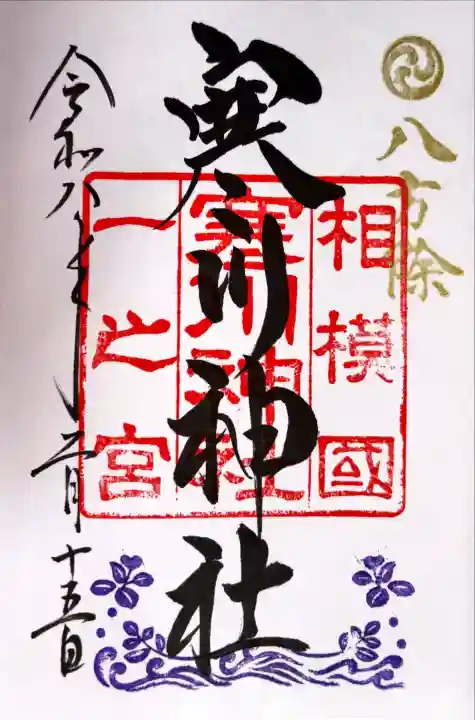 八方除
相模國
寒川神社
一之宮
寒川神社
令和八年二月十五日